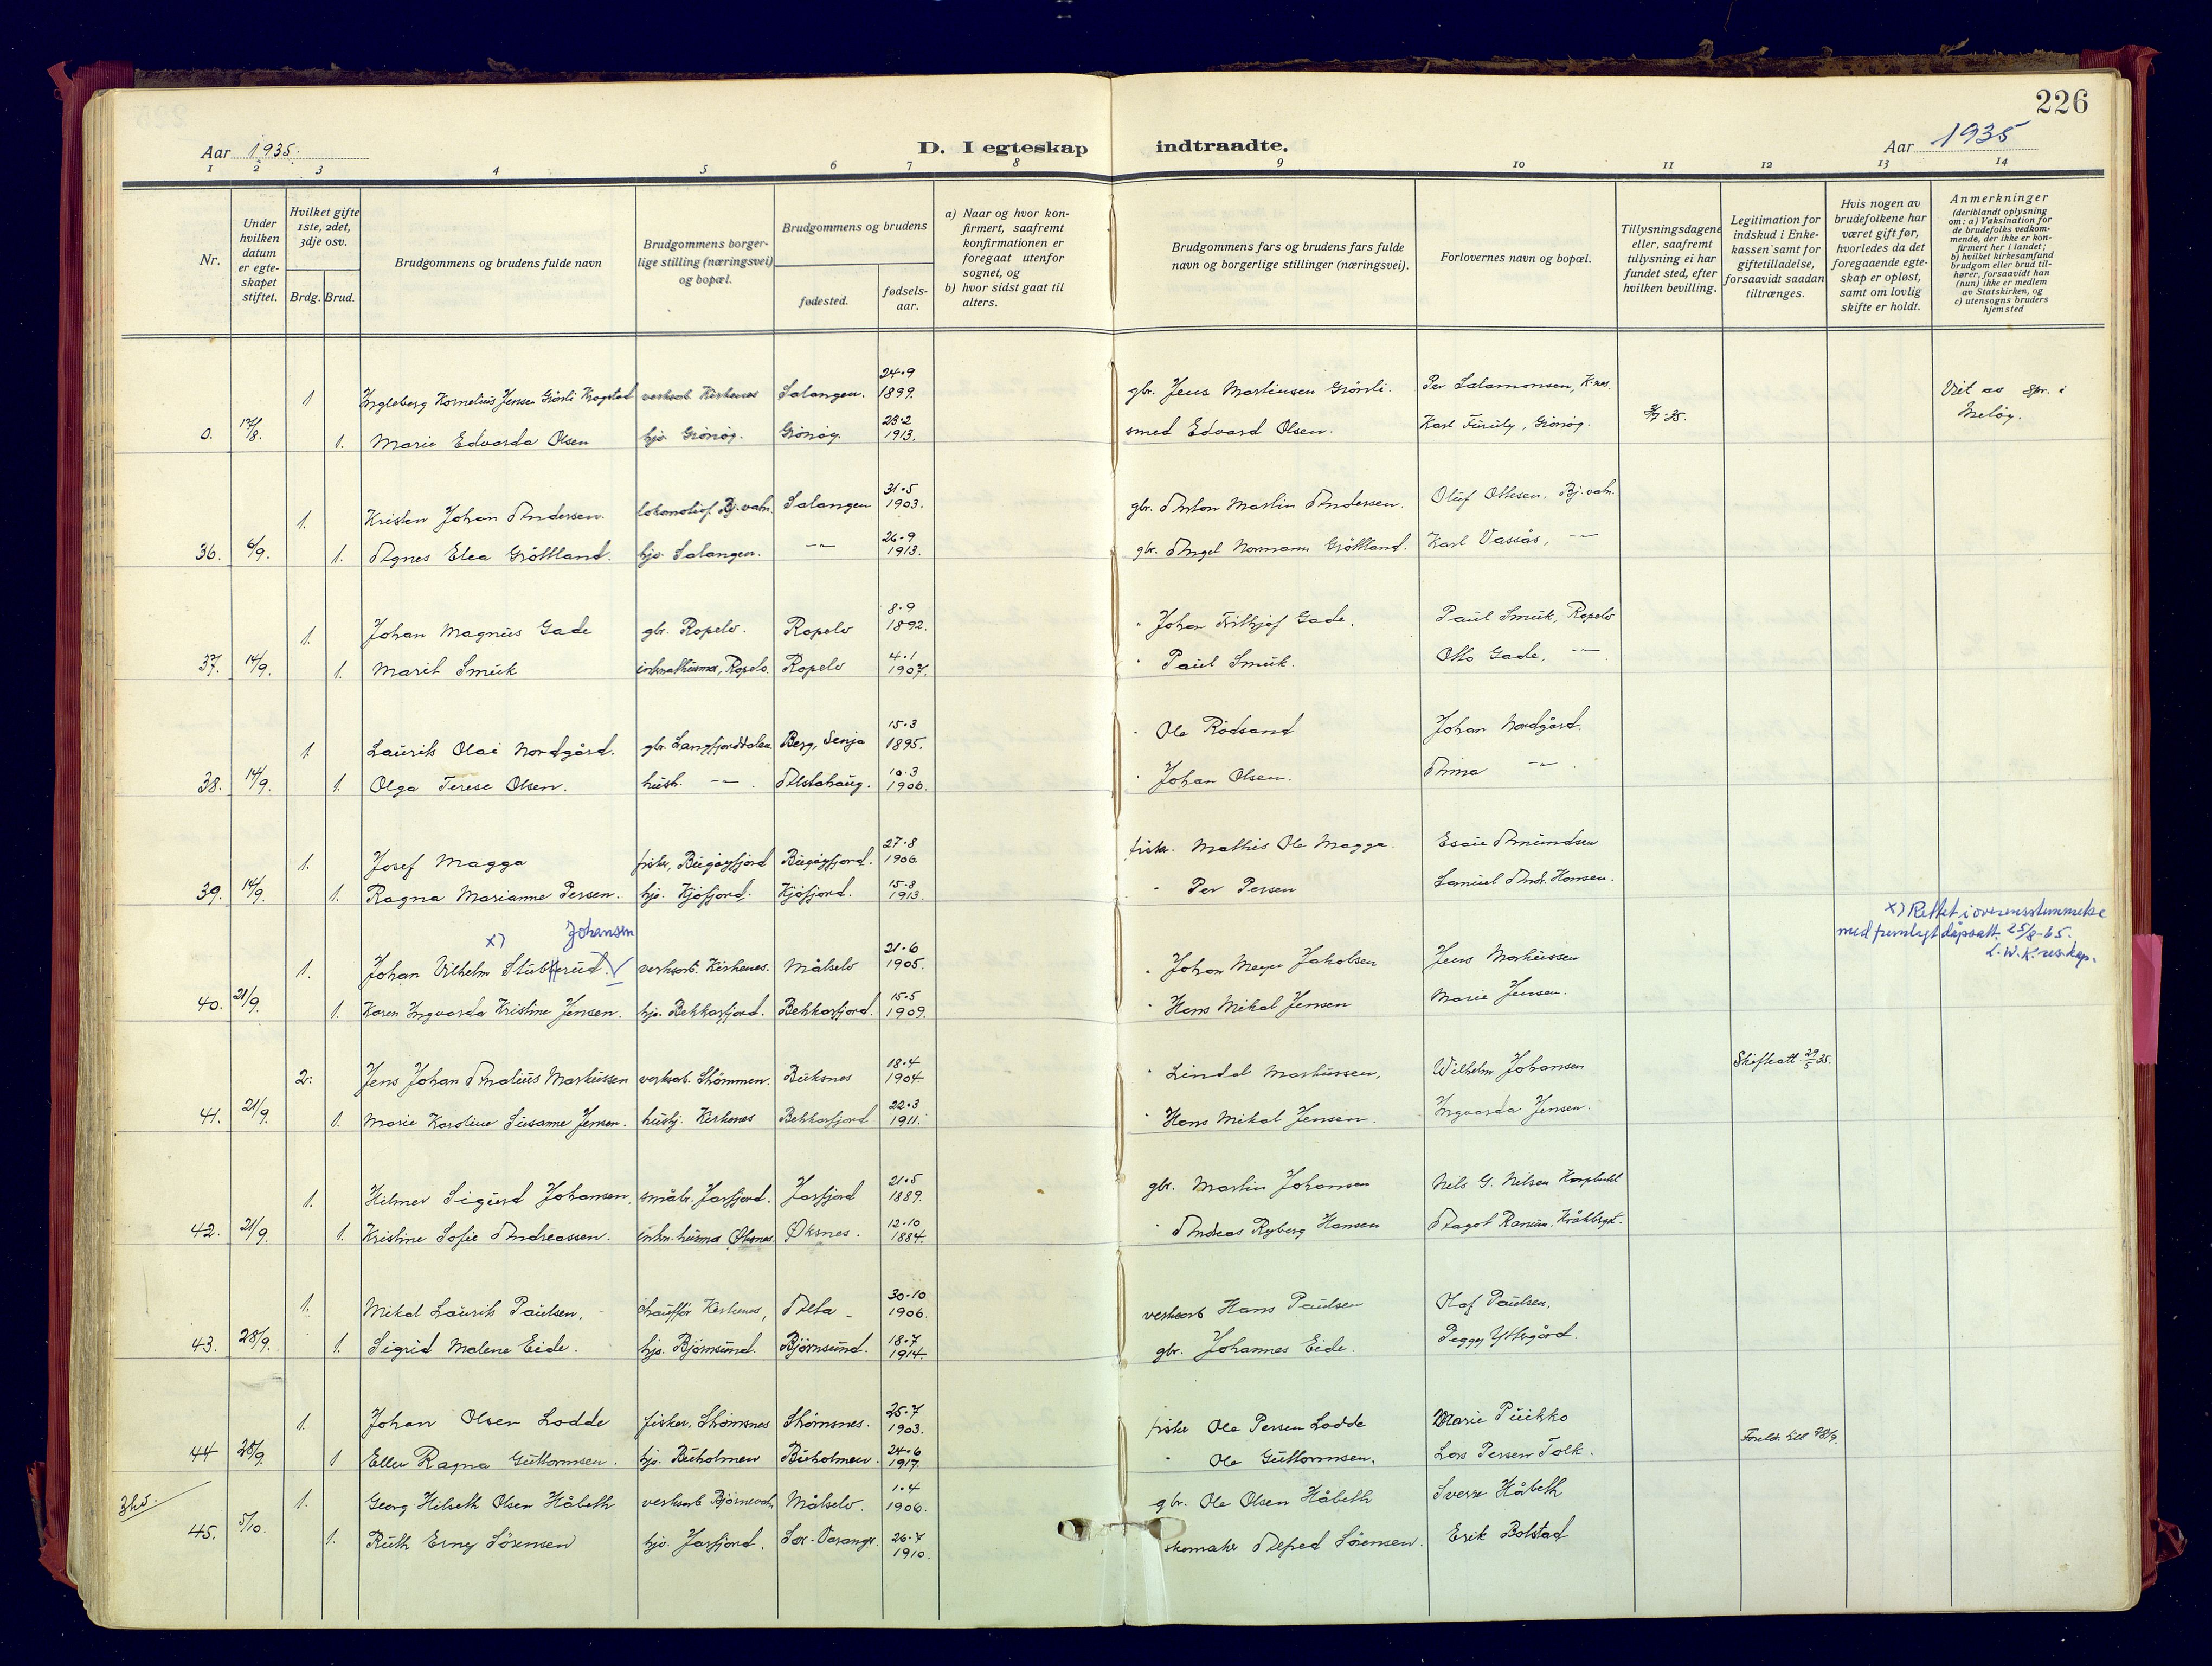 226
Aar 1935.
D. I egteskap indtraadte.
Aar 1935
1 2 3 4 5 6 7 8 9 10 11 12 13 14
Nr.
Under hvilken datum er egte-skapet stiftet.
Hvilket gifte 1ste, 2det, 3dje osv.
Brdg. Brud.
Brudgommens og brudens fulde navn
Brudgommens borger-lige stilling (næringsvei) og bopæl.
Brudgommens og brudens
fødested.
fødsels-aar.
a) Naar og hvor kon-firmert, saafremt konfirmationen er foregaat utenfor sognet, og
b) hvor sidst gaat til alters.
Brudgommens fars og brudens fars fulde navn og borgerlige stillinger (næringsvei).
Forlovernes navn og bopæl.
Tillysningsdagene eller, saafremt tillysning ei har fundet sted, efter hvilken bevilling.
Legitimation for indskud i Enke-kassen samt for giftetilladelse, forsaavidt saadan tiltrænges.
Hvis nogen av brudefolkene har været gift før, hvorledes da det foregaaende egte-skap er opløst, samt om lovlig skifte er holdt.
Anmerkninger
(deriblandt oplysning om: a) Vaksination for de brudefolks vedkom-mende, der ikke er kon-firmert her i landet; b) hvilket kirkesamfund brudgom eller brud til-hører, forsaavidt han (hun) ikke er medlem av Statskirken, og c) utensogns bruders hjemsted
24.9
1 Ingleberg Kornelius Jensen Grönli Krogstad verksarb. Kirkenes Salangen. 1899. gbr. Jens Martinsen Grönli. Per Salamonsen, K.nes. Viet av spr. i
23.2
0. 17/8. 1. Marie Edvarda Olsen hjv. Grönöy. Grönöy. 1913. smed Edvard Olsen. Karl Furuly, Grönöy. Melöy.
31.5
1. Kristen Johan Andersen. Bj.vatn. Salangen 1903. gbr. Anton Martin Andersen. Oluf Ottesen. Bj.vatn.
26.9
36. 6/9. 1. Agnes Elea Gröttland. hjv. Salangen. -"- 1913. gbr. Angel Normann Gröttland. Karl Vassås, -"-
8.9
1. Johan Magnus Gade gbr. Ropelv. Ropelv 1892. " Johan Frithjof Gade. Paul Smuk, Ropelv
4.1
37. 14/9. 1. Marit Smuk Ropelv. Ropelv 1907. " Paul Smuk. Otto Gade, -"-
15.3
1 Laurits Olai Nordgård. gbr. Langfjorddalen Berg, Senja 1895. " Ole Rödsand Johan Nordgård.
10.3
38. 14/9. 1. Olga Terese Olsen. hush. -"- . Alstahaug. 1900. " Johan Olsen. Anna -"- .
27.8
1. Josef Magga fisker, Bugöyfjord Bugöyfjord. 1906 fisker. Mathis Ole Magga. Esaie Amundsen
15.8
39. 14/9. 1. Ragna Marianne Persen. hjv. Kjöfjord. Kjöfjord. 1913. " Per Persen Samuel Andr. Hansen.
x) Johansen x) Rettet i overensstemmelse
med fremlagt dåpsatt. 25/8-65.
L.W.K. res.kap.
21.6
1. Johan Vilhelm Stubberud. verksarb. Kirkenes. Målselv 1905. " Johan Meyer Jakobsen Jens Markussen
15.5
40. 21/9. 1. Karen Ingvarda Kristine Jensen. hjv. Bekkarfjord. Bekkarfjord. 1909. " Hans Mikal Jensen Marie Jensen.
18.4
2. Jens Johan Analius Markussen verksarb. Strömmen. Buksnes 1904 " Lindal Markussen, Wilhelm Johansen Skifteatt. 29/5 35.
22.3
41. 21/9. 1. Marie Karoline Susanne Jensen. hushj. Kirkenes Bekkarfjord 1911. " Hans Mikal Jensen. Ingvarda Jensen.
21.5
1. Hilmer Sigurd Johansen. småbr. Jarfjord. Jarfjord 1889. gbr. Martin Johansen Nels G. Nilsen Karpbukt
12.10
42. 21/9. 1. Kristine Sofie Andreassen. Öksnes. Öksnes. 1884. " Andreas Ryberg Hansen Aagot
30.10
1. Mikal Laurits Paulsen. chauffør Kirkenes, Alta 1906. verksarb Hans Paulsen Olaf Paulsen.
18.7
43. 28/9. 1. Sigrid Malene Eide. hjv. Björnsund. Björnsund. 1914. gbr. Johannes Eide. Peggy Yttregård.
25.7
1. Johan Olsen Lodde fisker, Strömsnes Strömsnes. 1903. fisker Ole Persen Lodde Marie Puikko
24.6
44 28/9. 1 Ellen Ragna Guttormsen. hjv. Buholmen Buholmen. 1917. " Ole Guttormsen. Lars Persen Tolk.
1.4
1. Georg Hilseth Olsen Håbeth verksarb Björnevatn Målselv. 1906. gbr. Ole Olsen Håbeth Sverre Håbeth
26.7
45. 5/10. 1. Ruth Erney Sörensen hjv. Jarfjord. Sør-Varanger. 1910. skomaker Alfred Sörensen. Erik Bolstad